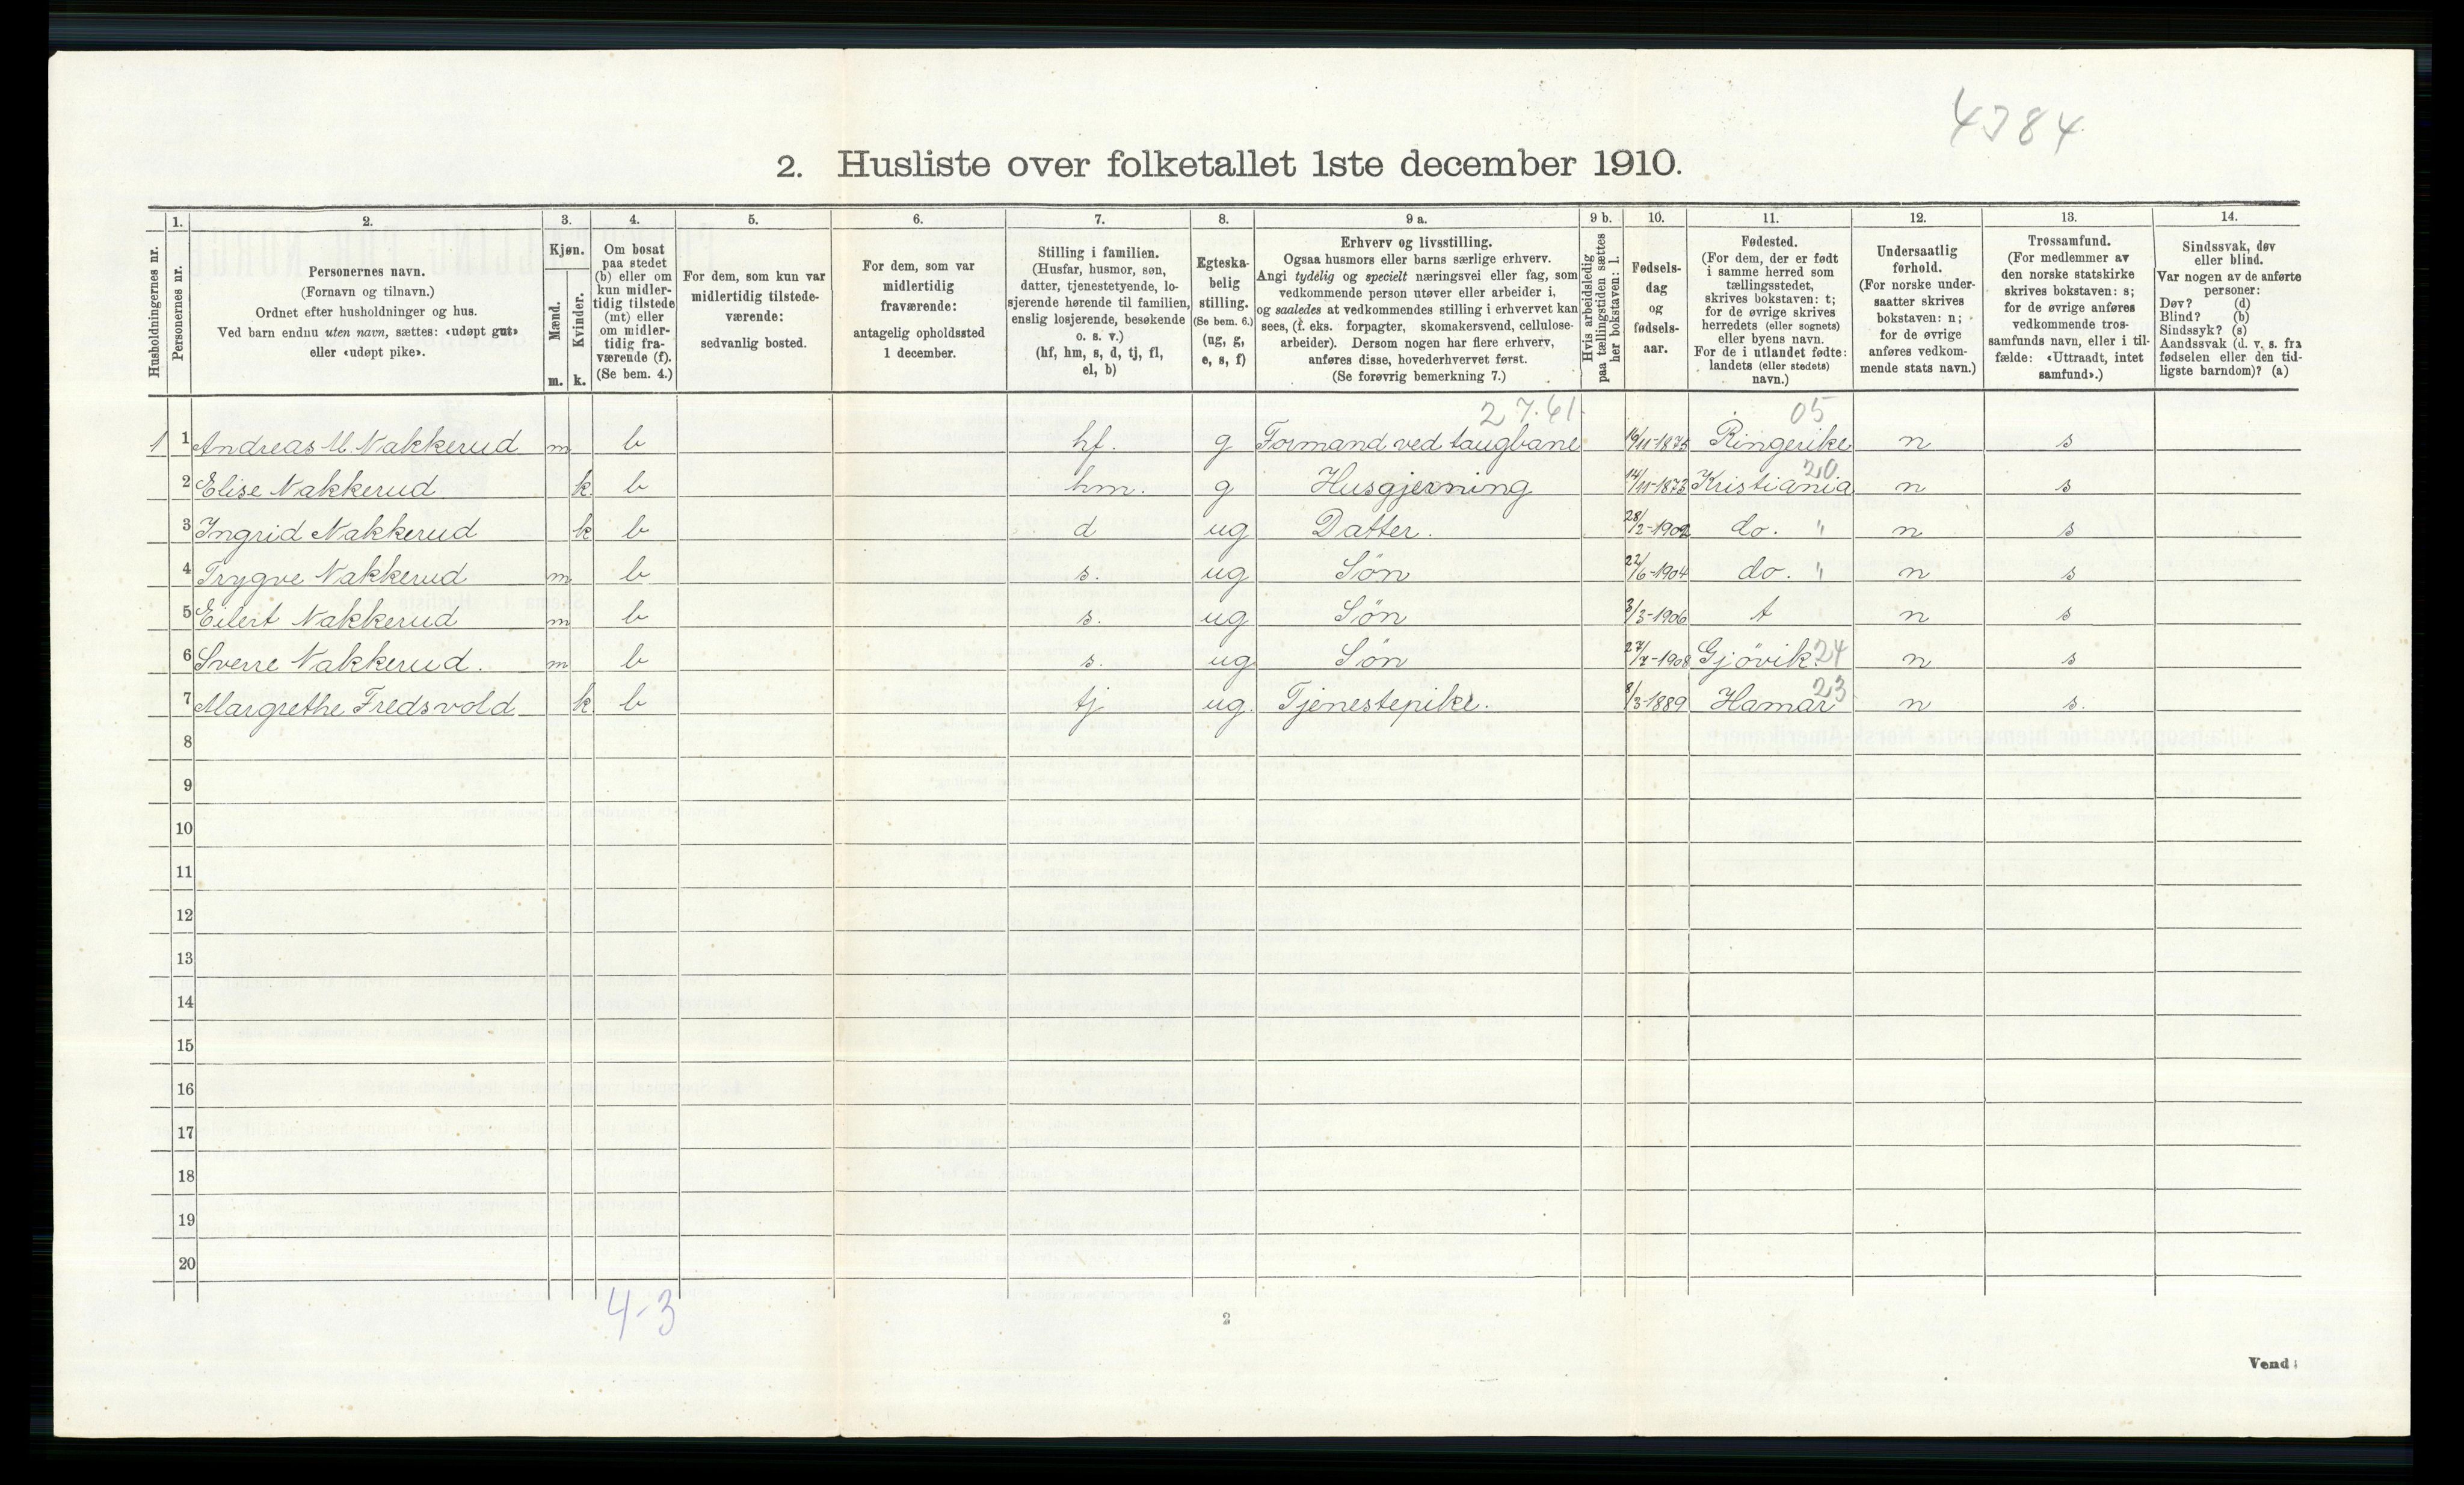 4384
2. Husliste over folketallet 1ste december 1910.
1. 2. 3. 4. 5. 6. 7. 8. 9 a. 9 b. 10. 11. 12. 13. 14.
Husholdningernes nr.
Personernes nr.
Personernes navn.
(Fornavn og tilnavn.)
Ordnet efter husholdninger og hus.
Ved barn endnu uten navn, sættes: «udøpt gut»
eller «udøpt pike».
Kjøn.
Mænd.
Kvinder.
m. k.
Om bosat
paa stedet
(b) eller om
kun midler-
tidig tilstede
(mt) eller
om midler-
tidig fra-
værende (f).
(Se bem. 4.)
For dem, som kun var
midlertidig tilstede-
værende:
sedvanlig bosted.
For dem, som var
midlertidig
fraværende:
antagelig opholdssted
1 december.
Stilling i familien.
(Husfar, husmor, søn,
datter, tjenestetyende, lo-
sjerende hørende til familien,
enslig losjerende, besøkende
o. s. v.)
(hf, hm, s, d, tj, fl,
el, b)
Egteska-
belig
stilling.
(Se bem. 6.)
(ug, g,
e, s, f)
Erhverv og livsstilling.
Ogsaa husmors eller barns særlige erhverv.
Angi tydelig og specielt næringsvei eller fag, som
vedkommende person utøver eller arbeider i,
og saaledes at vedkommendes stilling i erhvervet kan
sees, (f. eks. forpagter, skomakersvend, cellulose-
arbeider). Dersom nogen har flere erhverv,
anføres disse, hovederhvervet først.
(Se forøvrig bemerkning 7.)
Hvis arbeidsledig
paa tællingstiden sættes
her bokstaven: l.
Fødsels-
dag
og
fødsels-
aar.
Fødested.
(For dem, der er født
i samme herred som
tællingsstedet,
skrives bokstaven: t;
for de øvrige skrives
herredets (eller sognets)
eller byens navn.
For de i utlandet fødte:
landets (eller stedets)
navn.)
Undersaatlig
forhold.
(For norske under-
saatter skrives
bokstaven: n;
for de øvrige
anføres vedkom-
mende stats navn.)
Trossamfund.
(For medlemmer av
den norske statskirke
skrives bokstaven: s;
for de øvrige anføres
vedkommende tros-
samfunds navn, eller i til-
fælde: «Uttraadt, intet
samfund».)
Sindssvak, døv
eller blind.
Var nogen av de anførte
personer:
Døv? (d)
Blind? (b)
Sindssyk? (s)
Aandssvak (d. v. s. fra
fødselen eller den tid-
ligste barndom)? (a)
27.61. 05
1 1 Andreas M. Nakkerud m b hf. g Formand ved taugbane 19/11-1875 Ringerike n s
2 Elise Nakkerud k b hm. g Husgjerning 14/11-1873 Kristiania 20 n s
3 Ingrid Nakkerud k b d ug Datter. 28/2-1902 do. " n s
4 Trygve Nakkerud m b s. ug Søn 22/6-1904 do. " n s
5 Eilert Nakkerud m b s. ug Søn 3/3-1906 t n s
6 Sverre Nakkerud. m b s. ug Søn 27/7-1908 Gjøvik. 24 n s
7 Margrethe Fredsvold k b tj ug. Tjenestepike. 8/3-1889 Hamar 23 n s.
8
9
10
11
12
13
14
15
16
17
18
19
20
4-3
2
Vend